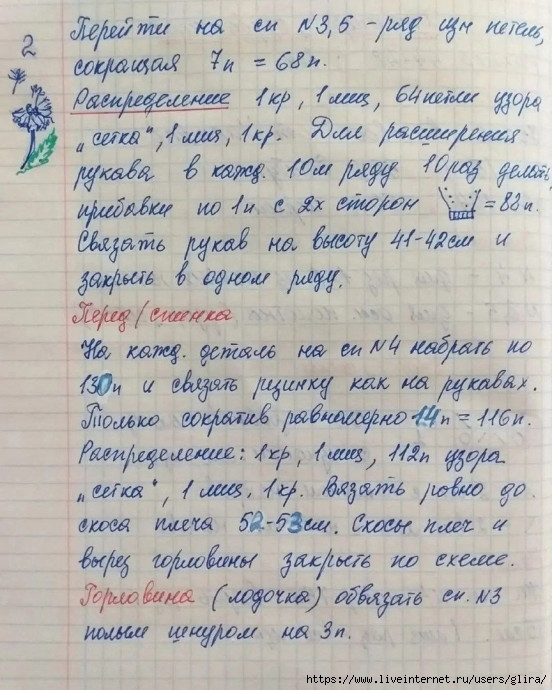 2
Перейти на сп N3,5 - ряд изн петель,
сокращая 7п = 68п.
Распределение 1кр, 1лиц, 64петли узора
„сетка“, 1лиц, 1кр. Для расширения
рукава в кажд. 10м ряду 10раз делать
прибавки по 1п с 2х сторон = 88п.
Связать рукав на высоту 41-42см и
закрыть в одном ряду.
Перед/спинка
На кажд. деталь на сп N4 набрать по
130п и связать рзинку как на рукавах.
Только сократив равномерно 14п = 116п.
Распределение: 1кр, 1лиц, 112п узора
„сетка“, 1лиц, 1кр. Вязать ровно до
скоса плеча 52-53см. Скосы плеч и
вырез горловины закрыть по схеме.
Горловина (лодочка) обвязать сп. N3
полым шнуром на 3п.
https://www.liveinternet.ru/users/glira/